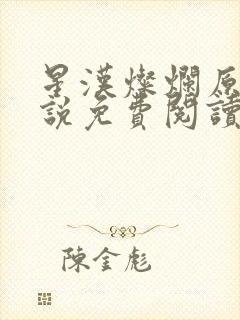 星漢燦爛原
說免費閱讀
陳金彪